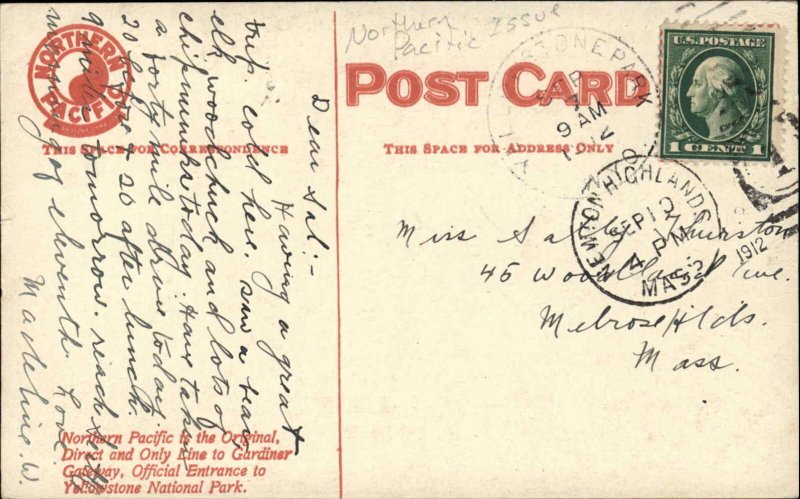 Northern
Pacific Issue
NORTHERN
PACIFIC
POST CARD
THIS SPACE FOR CORRESPONDENCE
THIS SPACE FOR ADDRESS ONLY
U.S. POSTAGE
1 CENTS 1
YELLOWSTONE PARK
SEP
7
9 AM
1912
NEWTON HIGHLANDS
SEP 12
4 PM
MASS.
1912
Dear Sal:-
Having a great
trip. cold here. saw a bear
elk woodchuck and lots of
chipmunks today. Have taken
a forty mile drive today
20 before & 20 after lunch.
9 miles tomorrow. reach
morning of eleventh. Love
Madeline. W.
Miss Sally Thurston
45 Woodland Ave.
Melrose Hlds.
Mass.
Northern Pacific is the Original,
Direct and Only Line to Gardiner
Gateway, Official Entrance to
Yellowstone National Park.